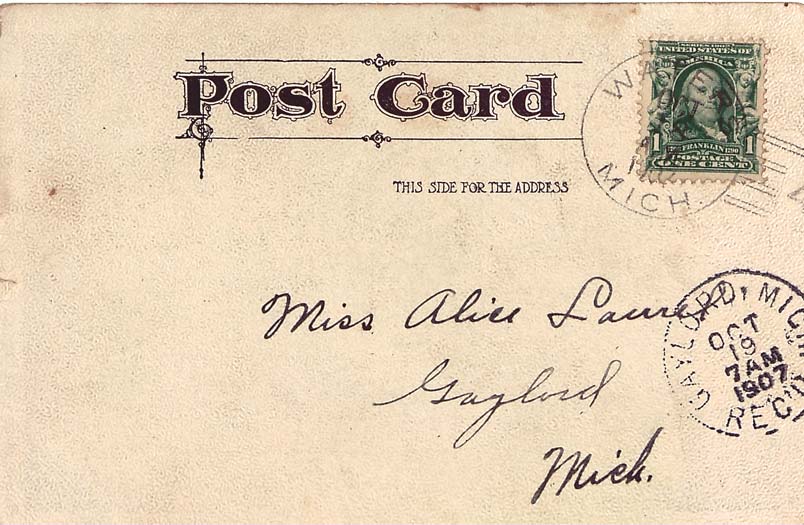 Post Card
THIS SIDE FOR THE ADDRESS
SERIES 1902
UNITED STATES OF
AMERICA
1 FRANKLIN 1790 1
POSTAGE
ONE CENT
MICH
Miss Alice
Gaylord
Mich.
GAYLORD, MICH.
OCT
19
7AM
1907
REC'D